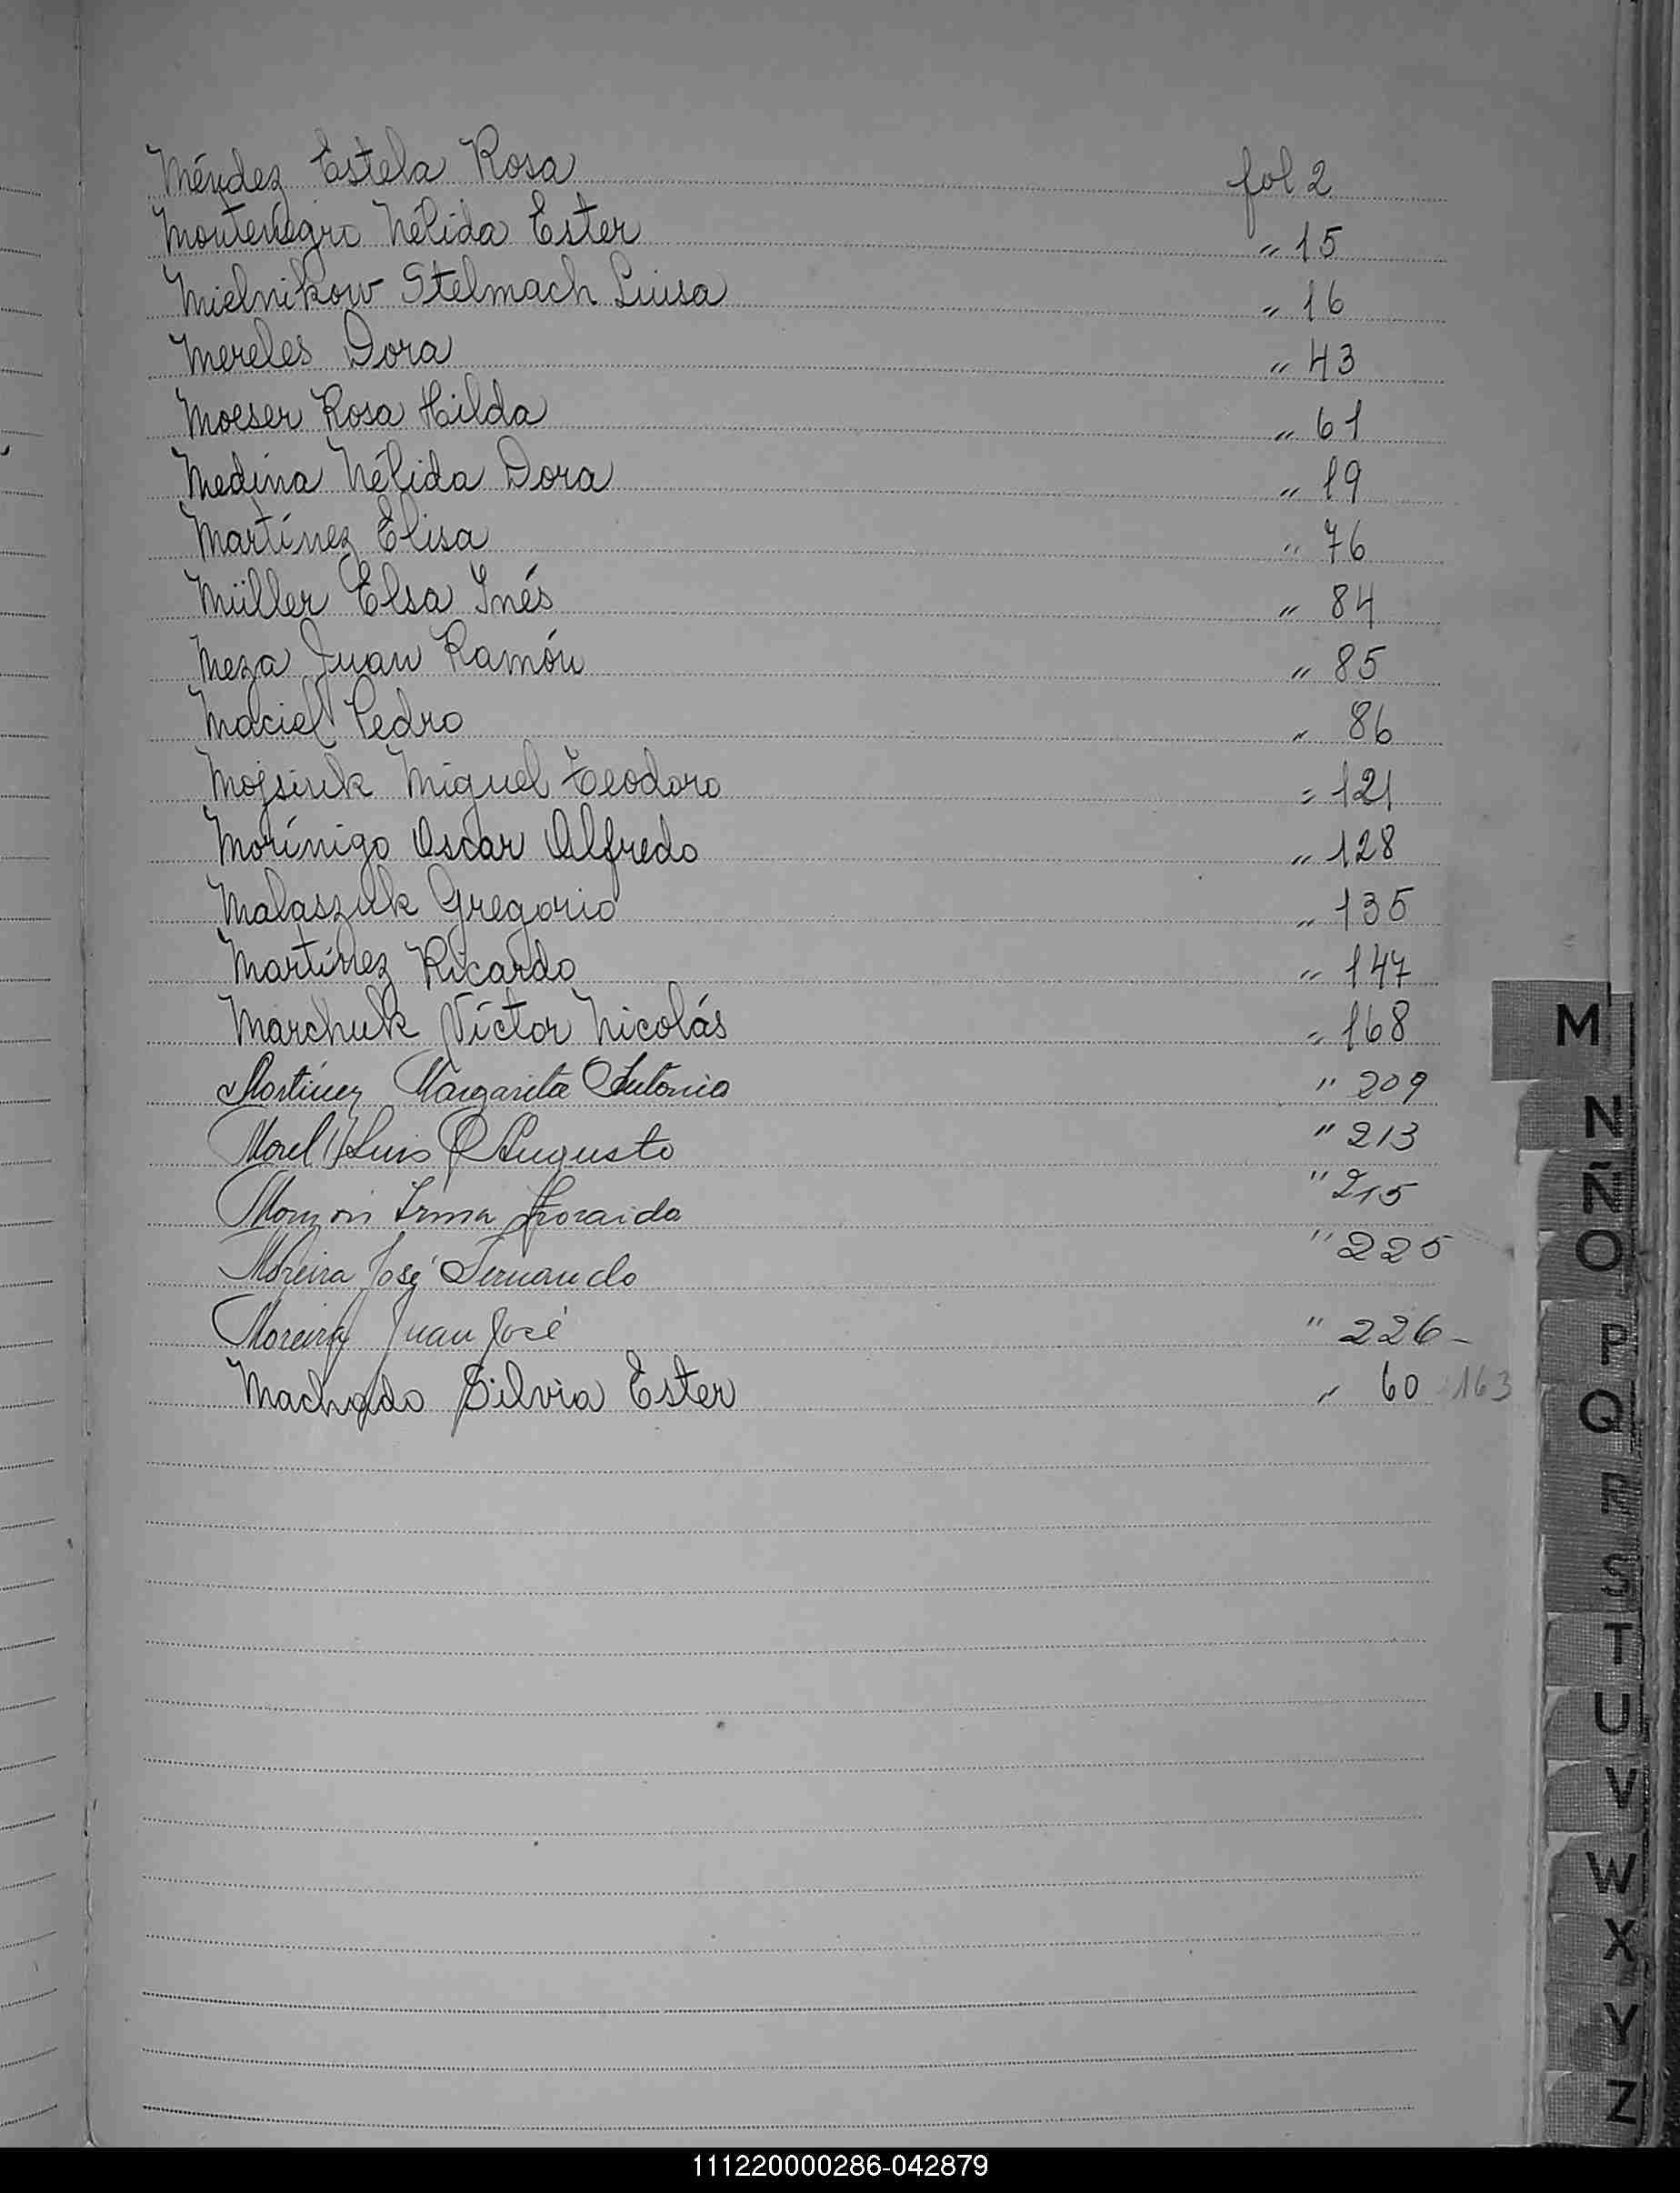 Méndez Estela Rosa fol 2
Montenegro Nélida Ester " 15
Mielnikow Stelmach Luisa " 16
Mereles Dora " 43
Moeser Rosa Hilda " 61
Medina Nélida Dora " 19
Martínez Elisa " 76
Müller Elsa Inés " 84
Meza Juan Ramón " 85
Maciel Pedro " 86
Mojsiuk Miguel Teodoro " 121
Morínigo Oscar Alfredo " 128
Malaszuk Gregorio " 135
Martínez Ricardo " 147
Marchuk Víctor Nicolás " 168
Martínez Margarita Antonia " 209
Morel Luis Augusto " 213
Monzón Irma Zoraida " 215
Moreira José Fernando " 225
Moreira Juan José " 226-
Machado Silvia Ester " 60 163
M
N
Ñ
O
P
Q
R
S
T
U
V
W
X
Y
Z
111220000286-042879